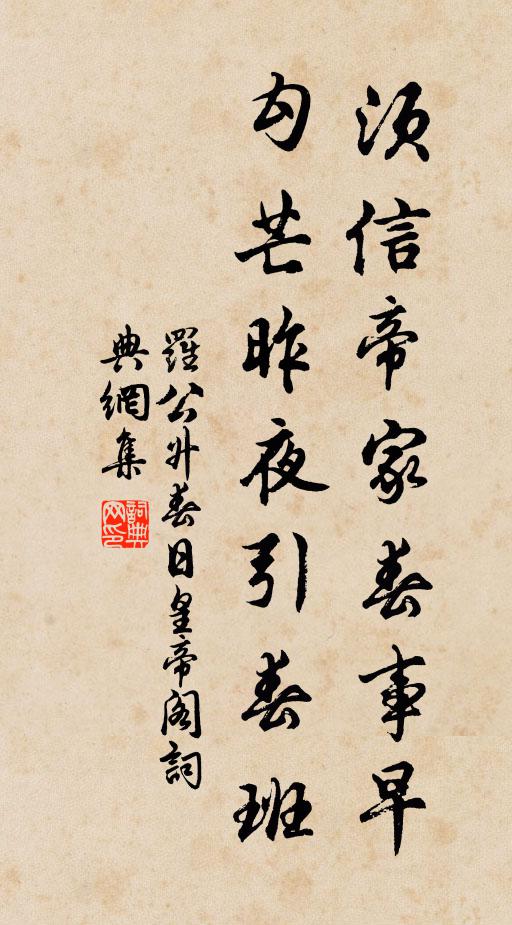 須信帝家春事早
勾芒昨夜引春班
羅公升春日皇帝閣詞
典網集
詞典網印